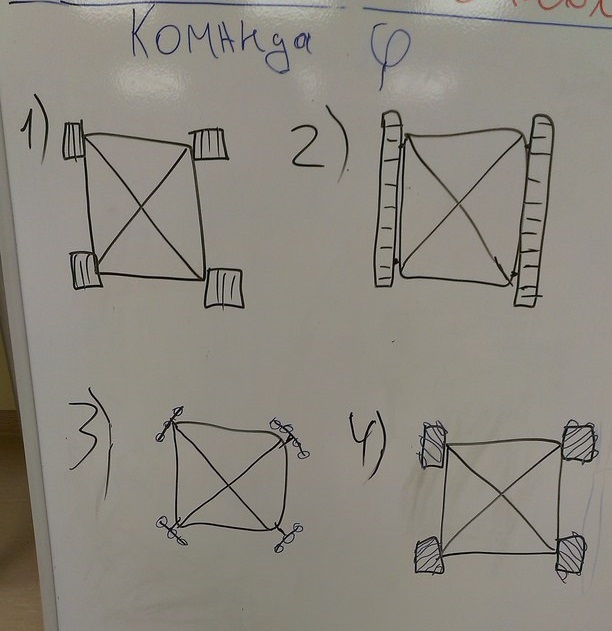 Команда φ
1)
2)
3)
4)